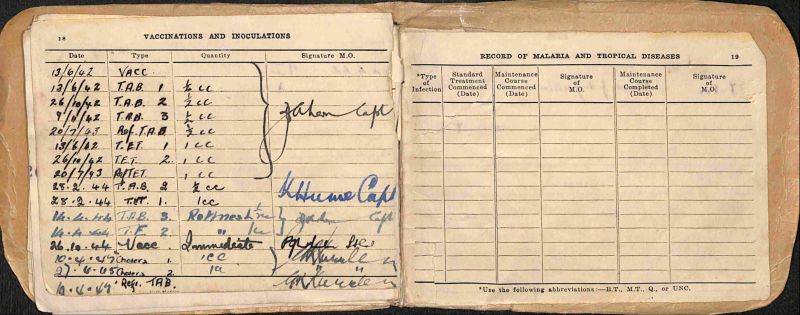 18 VACCINATIONS AND INOCULATIONS
Date Type Quantity Signature M.O.
13/6/42 VACC.
13/6/42 T.A.B. 1 ½ cc
26/10/42 T.A.B. 2 ½ cc
9/11/42 T.A.B. 3 ½ cc Capt
20/7/43 Ref. T.A.B. ½ cc
13/6/42 T.ET. 1 1 cc
26/10/42 T.ET. 2 1 cc
20/7/43 Ref TET 1 cc
28.2.44 T.A.B. 2 ½ cc K Hume Capt
28.2.44 TET. 1. 1cc
14.4.44 T.A.B. 3. Capt
14.4.44 T.E. 2. "
26.10.44 Vacc. Immediate
10.4.45 Cholera 1. 1cc
27.4.45 Cholera 2. 1cc
Refr. TAB.
RECORD OF MALARIA AND TROPICAL DISEASES 19
*Type of Infection
Standard Treatment Commenced (Date)
Maintenance Course Commenced (Date)
Signature of M.O.
Maintenance Course Completed (Date)
Signature of M.O.
*Use the following abbreviations:—B.T., M.T., Q., or UNC.